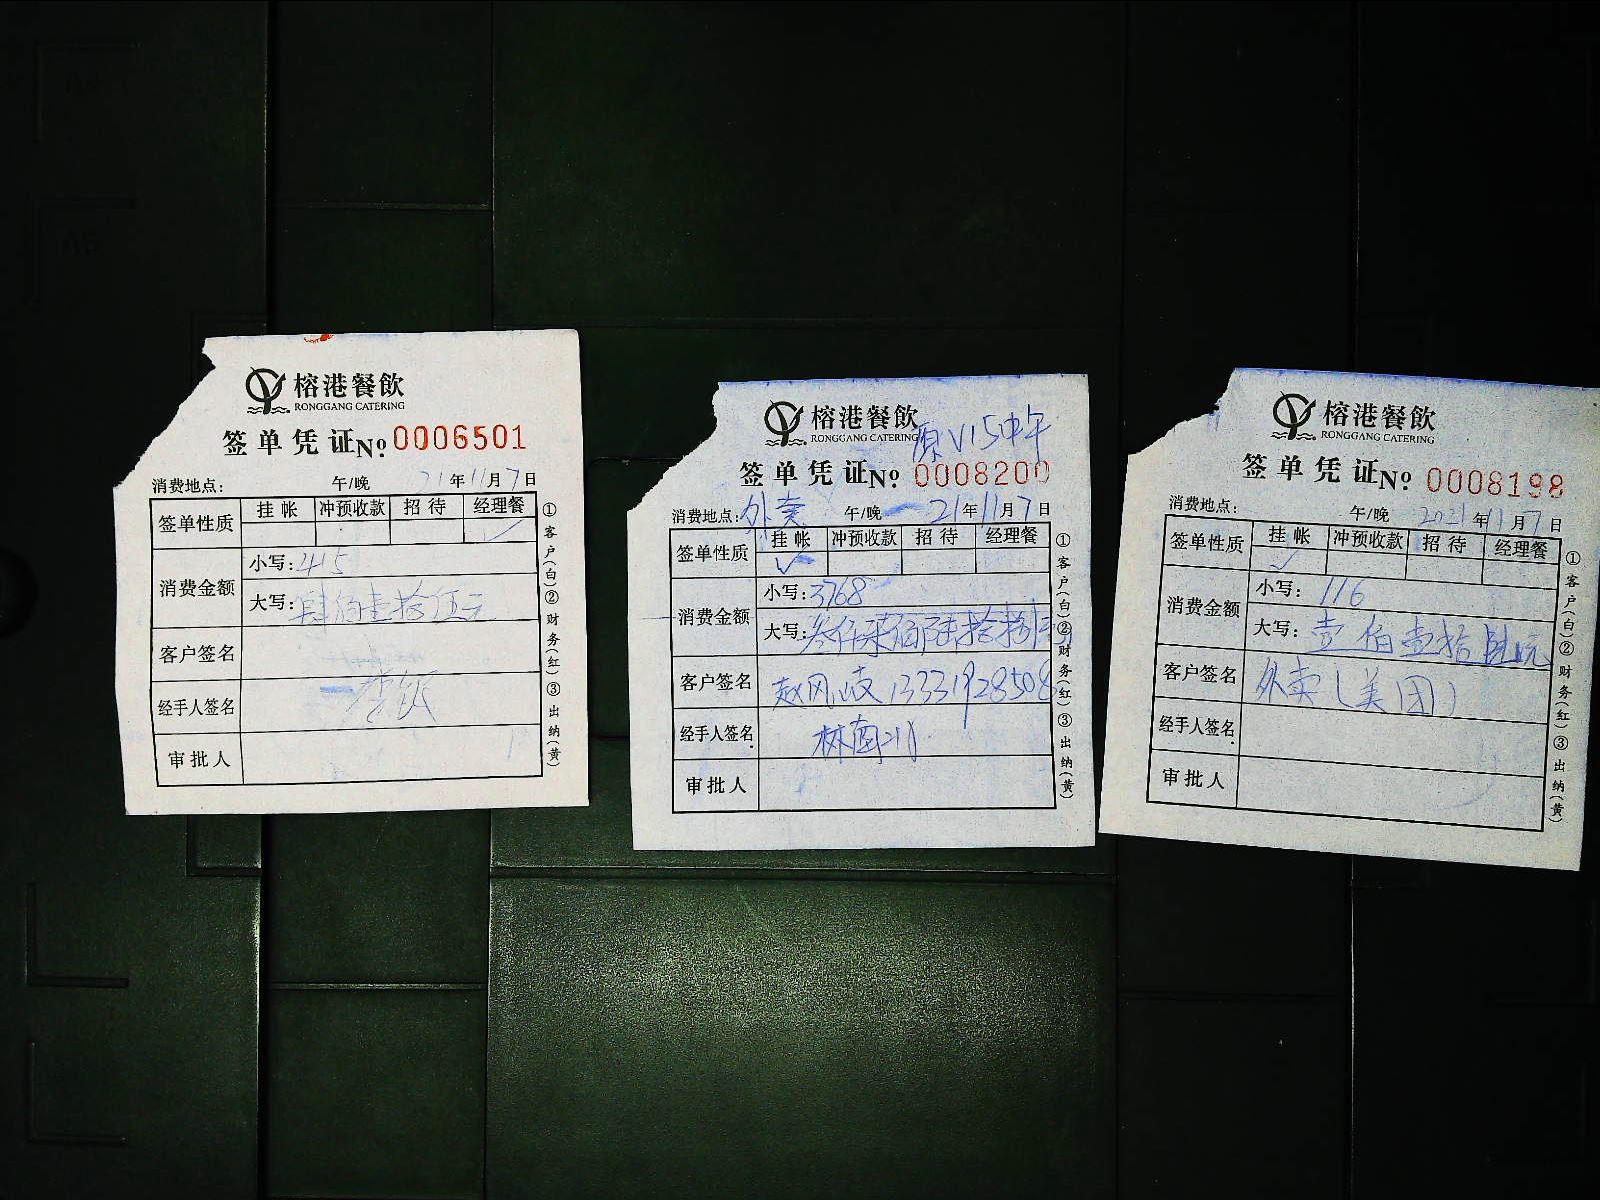 榕港餐飲
RONGGANG CATERING
签单凭证 No 0006501
消费地点： 午/晚 21年11月7日
签单性质 挂帐 冲预收款 招待 经理餐
✓
消费金额 小写：415
大写：肆佰壹拾伍元
客户签名
经手人签名
审批人
①客户(白)②财务(红)③出纳(黄)
榕港餐飲
RONGGANG CATERING
原V15中午
签单凭证 No 0008200
消费地点：外卖 午/晚 21年11月7日
签单性质 挂帐 冲预收款 招待 经理餐
✓
消费金额 小写：3768
大写：叁仟柒佰陆拾捌元
客户签名 赵风波 13331928508
经手人签名
审批人
①客户(白)②财务(红)③出纳(黄)
榕港餐飲
RONGGANG CATERING
签单凭证 No 0008198
消费地点： 午/晚 2021年11月7日
签单性质 挂帐 冲预收款 招待 经理餐
✓
消费金额 小写：116
大写：壹佰壹拾陆元
客户签名 外卖(美团)
经手人签名
审批人
①客户(白)②财务(红)③出纳(黄)